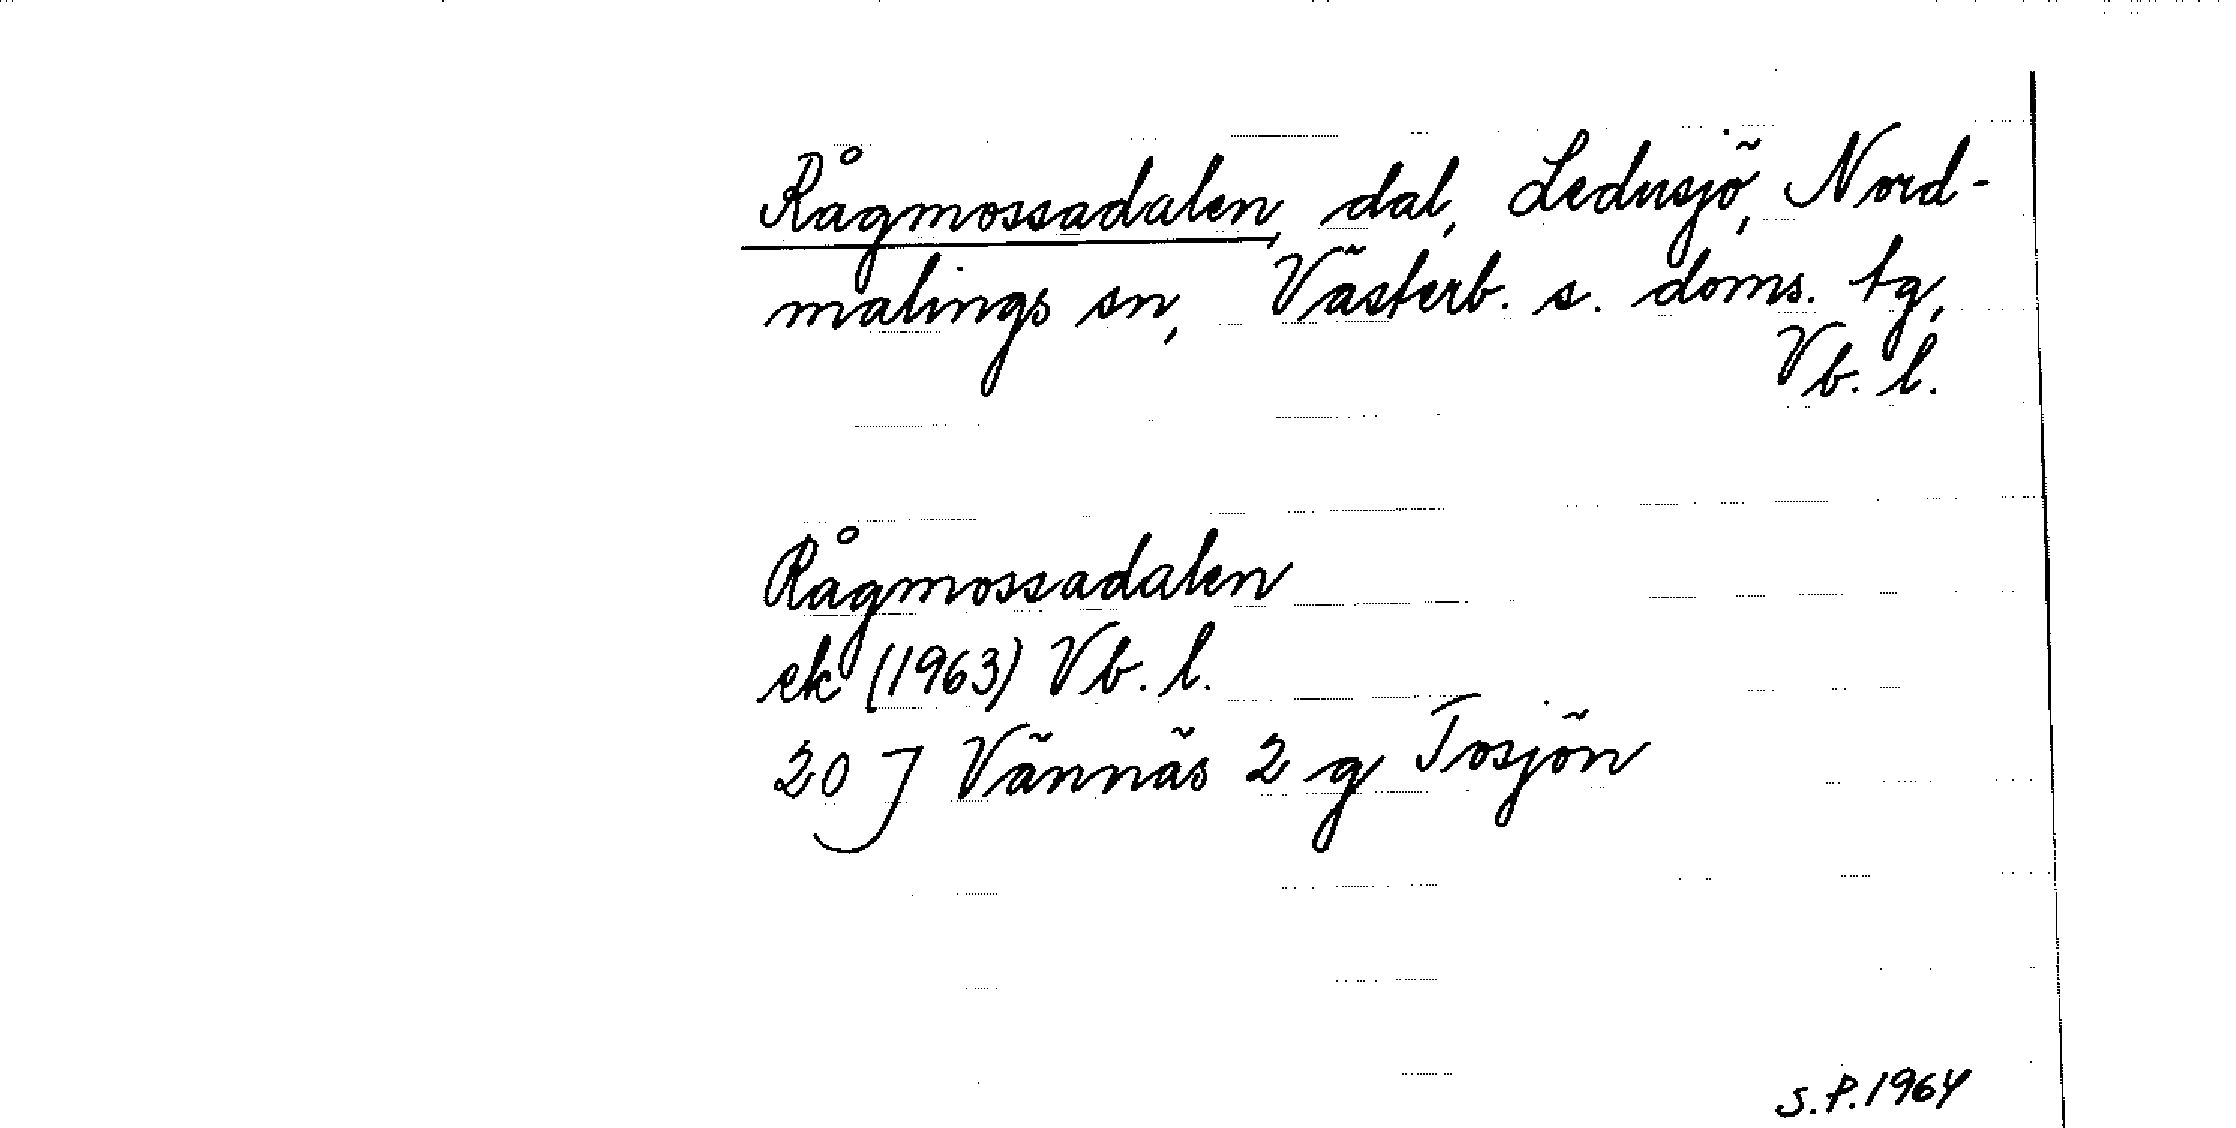 Rågmossadalen, dal, Ledusjö, Nord-
malings sn, Västerb. s. doms. tg,
Vb. l.
Rågmossadalen
ek (1963) Vb. l.
20 J Vännäs 2 g Tosjön
S.P. 1964